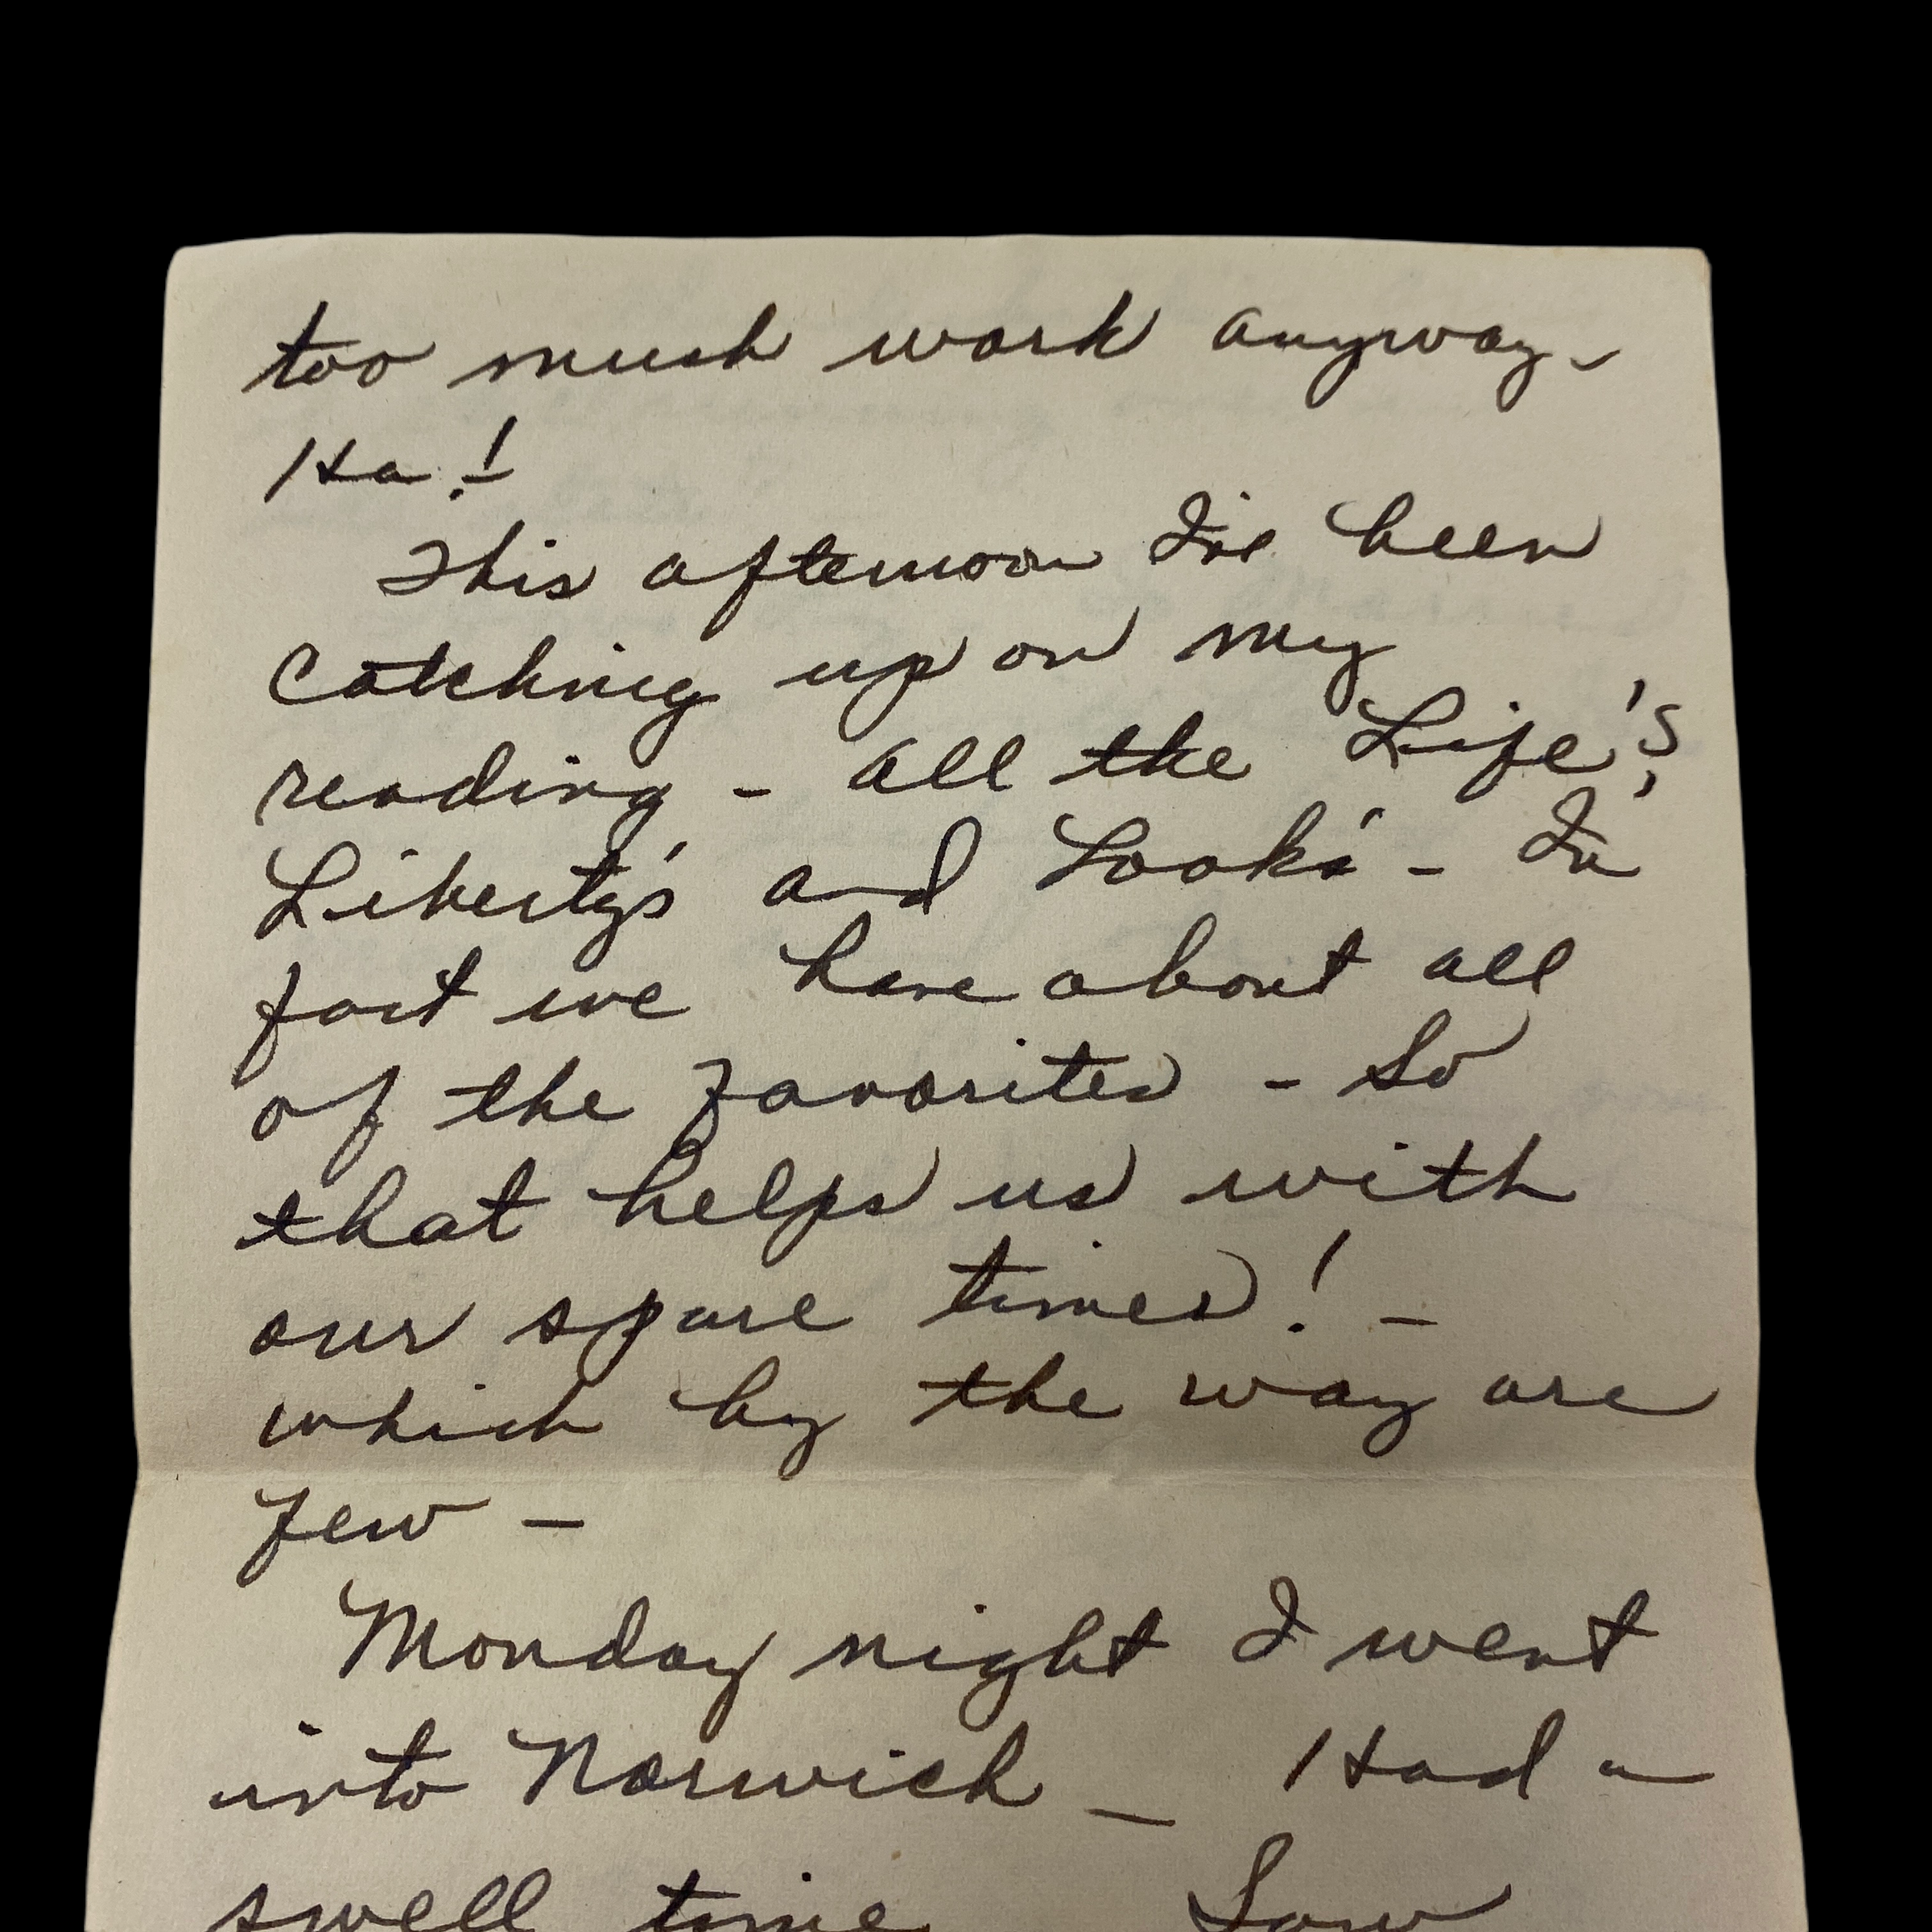 too much work anyway -
Ha!
This afternoon I've been
catching up on my
reading - all the Life's,
Liberty's and Look's - In
fact we have about all
of the favorites - So
that helps us with
our spare times! -
which by the way are
few -
Monday night I went
into Norwich - Had a
swell time Saw